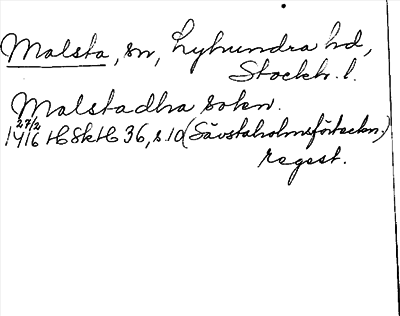 Malsta, sn, Lyhundra hd,
Stockh. l.
Malstadha sokn.
27/2
1416 HSH 36, s. 10 (Sävstaholmsförteckn,)
regest.